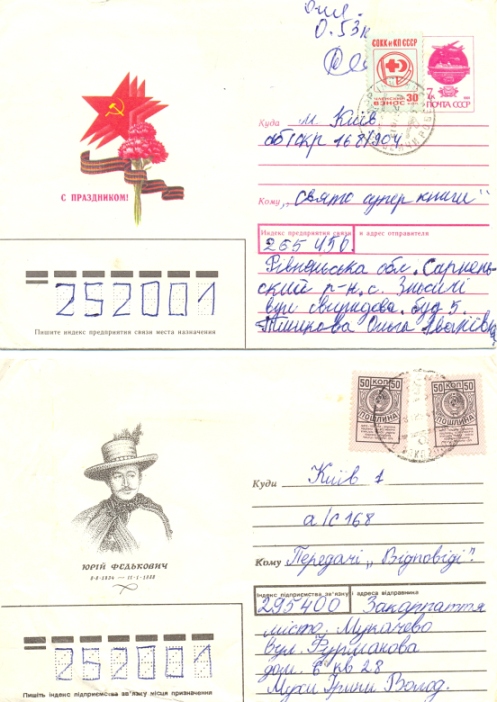 Опл.
0.53к
СОКК и КП СССР
ЧЛЕНСКИЙ
ВЗНОС 30
7к
ПОЧТА СССР
Куда м. Київ.
168/904.
С ПРАЗДНИКОМ!
Кому „свято супер книги“
Индекс предприятия связи и адрес отправителя
265450.
Рівненська обл. Сарнен-
ський р-н, с. Зносичі
вул. Свиридова. буд 5.
Ольга
252001
Пишите индекс предприятия связи места назначения
50 КОП 50
ПОШЛИНА
50 КОП 50
ПОШЛИНА
Куди Київ 1
а/с 168
Кому Передачі „Відповіді“.
ЮРІЙ ФЕДЬКОВИЧ
8-8-1834 — 11-1-1888
Індекс підприємства зв'язку і адреса відправника
295400 Закарпаття
місто. Мукачево
вул. Фурманова
дом. 6 кв 28
Ірини Волод.
252001
Пишіть індекс підприємства зв'язку місця призначення